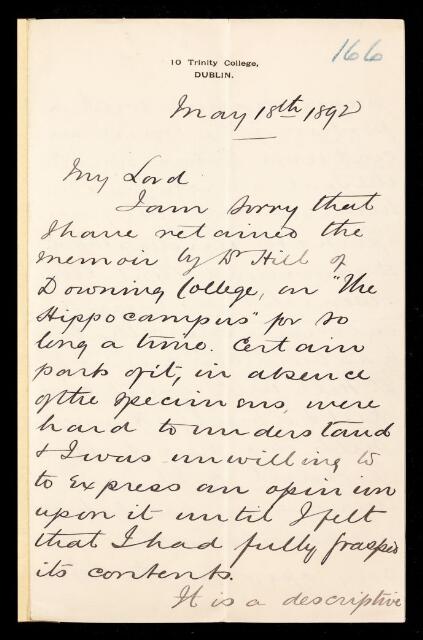 10 Trinity College,
DUBLIN.
166
May 18th 1892
My Lord
I am sorry that
I have retained the
memoir by Dr Hill of
Downing College, on "The
Hippocampus" for so
long a time. Certain
parts of it, in absence
of the specimens, were
hard to understand
& I was unwilling to
to express an opinion
upon it until I felt
that I had fully grasped
its contents.
It is a descriptive